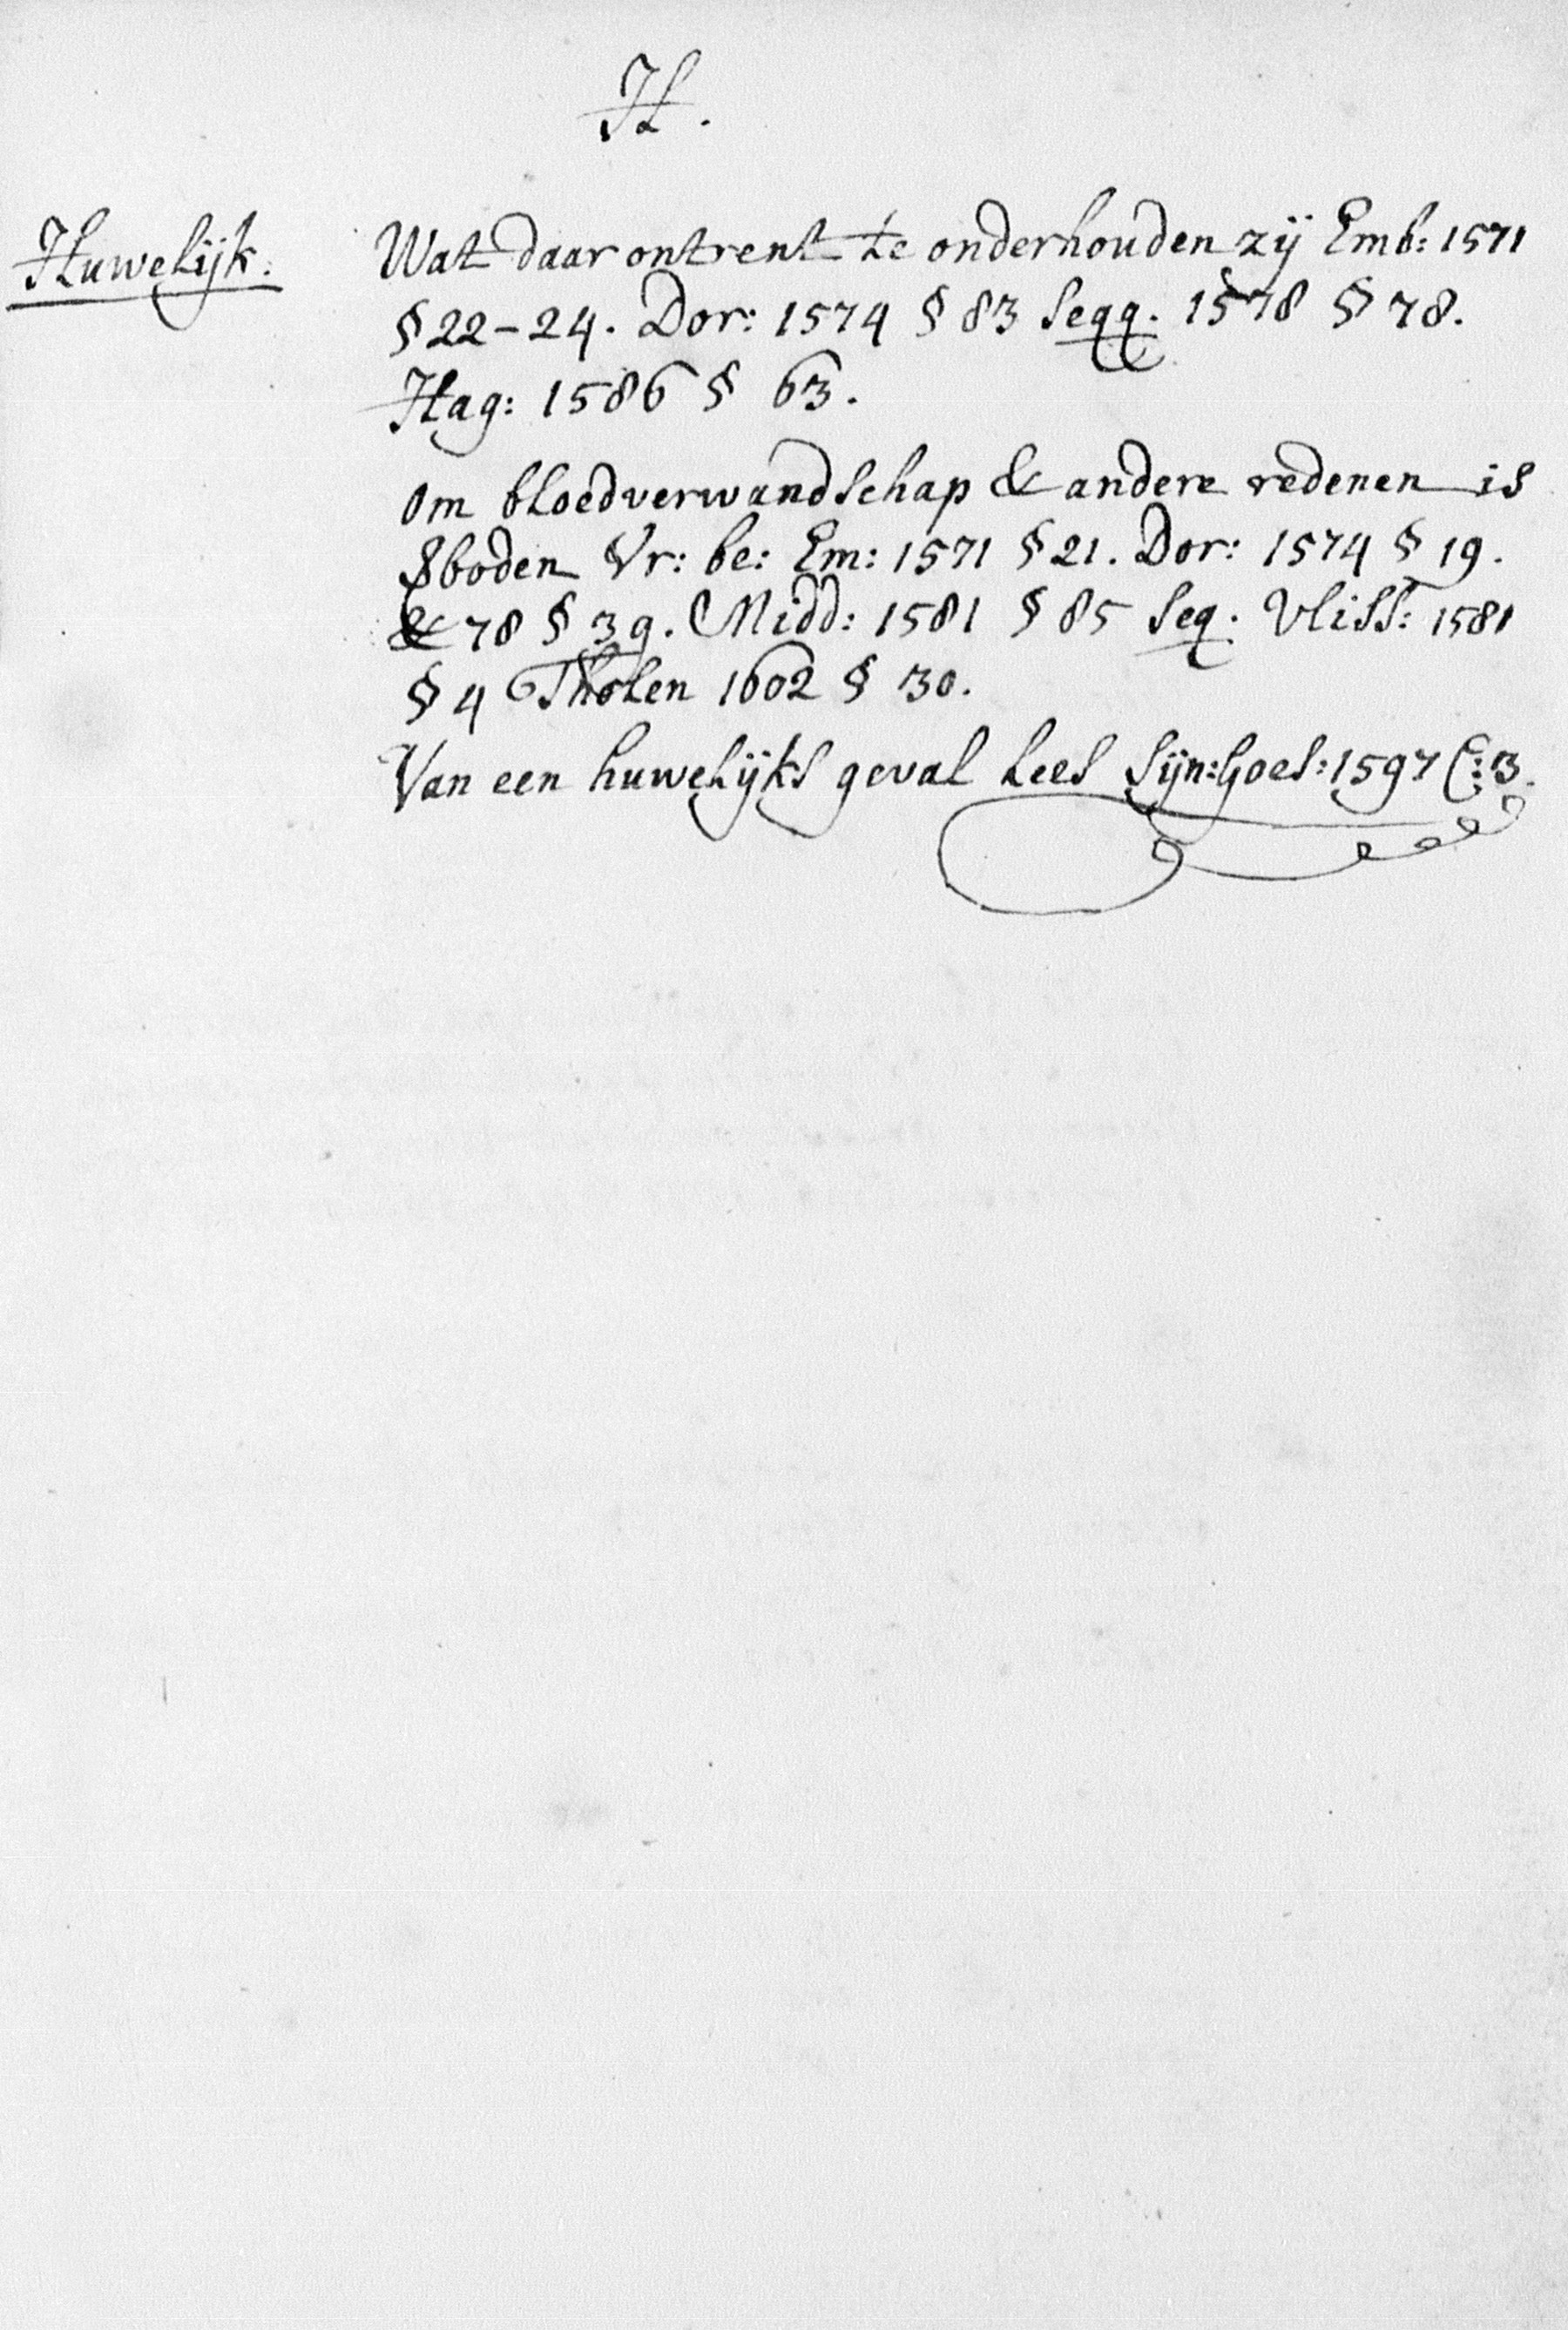 H.
Huwelijk. Wat daar ontrent te onderhouden zij Emb: 1571
§ 22-24. Dor: 1574 § 83 seqq. 1578 § 78.
Hag: 1586 § 63.
Om bloedverwandschap & andere redenen is
boden Vr: be: Em: 1571 § 21. Dor: 1574 § 19.
& 78 § 39. Midd: 1581 § 85 seq. Vliss: 1581
§ 4 Tholen 1602 § 30.
Van een huwelijks geval lees Sijn: Goes: 1597 C: 3.